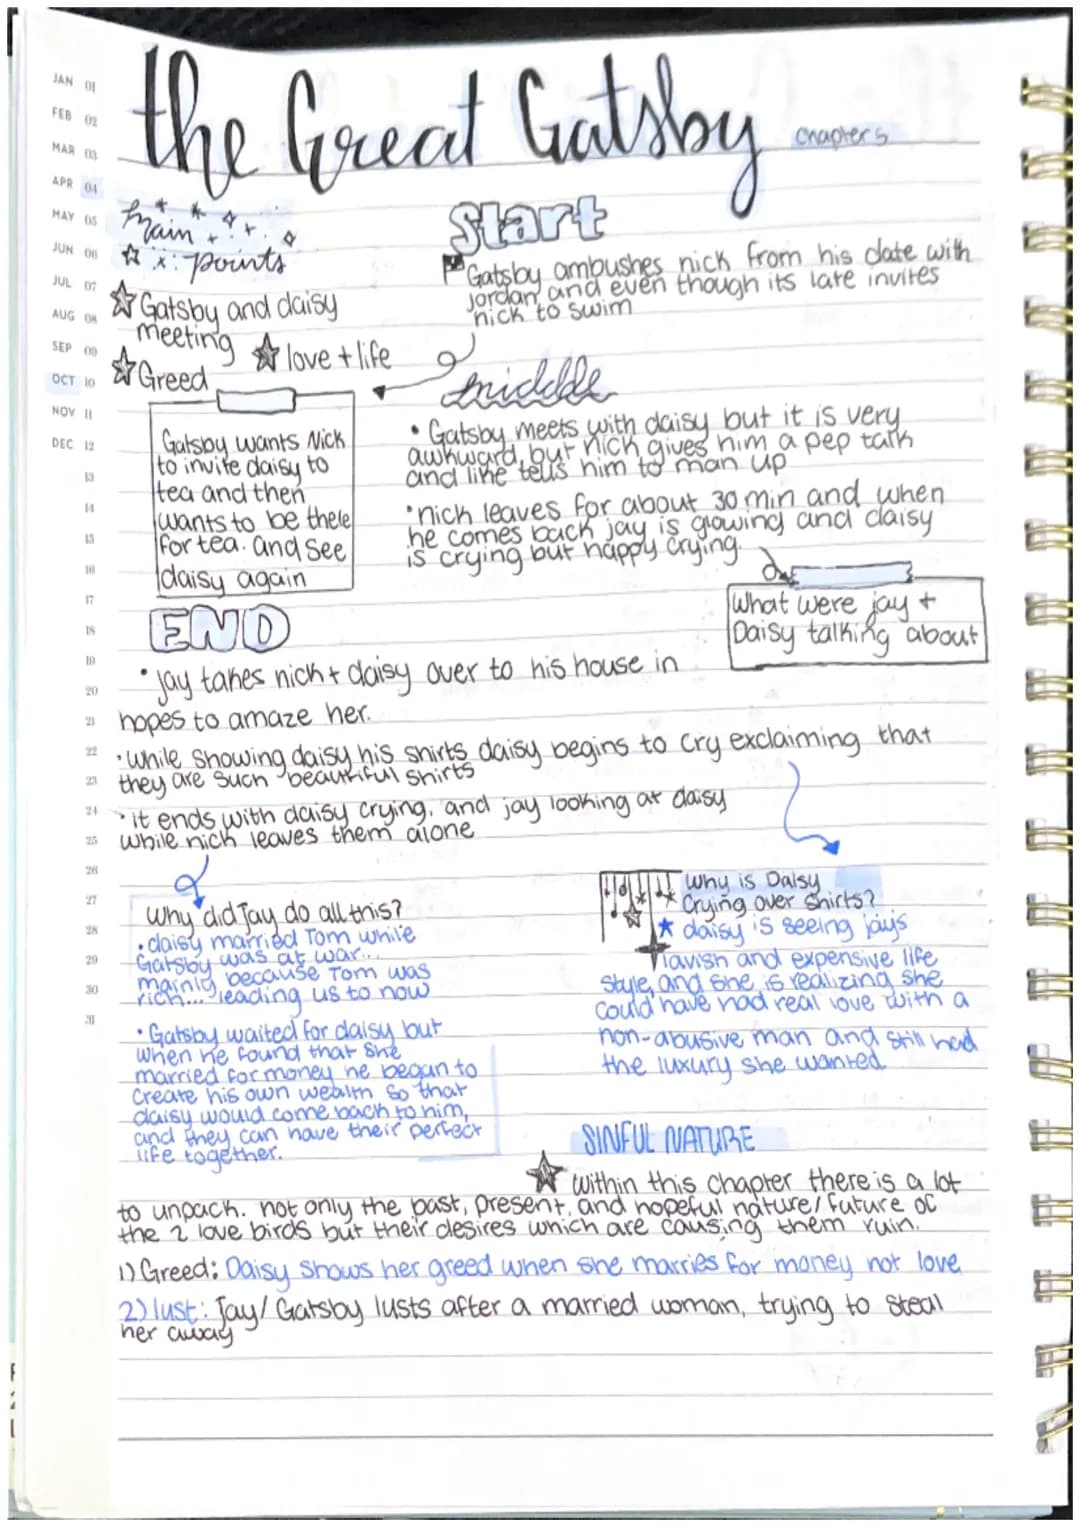 the Great Gatsby
Chapter 5
JAN 01
FEB 02
MAR 03
APR 04
MAY 05
JUN 06
JUL 07
AUG 08
SEP 09
OCT 10
NOV 11
DEC 12
13
14
15
16
17
18
19
20
21
22
23
24
25
26
27
28
29
30
31
main
points
Gatsby and daisy
meeting
love + life
Greed
Start
Gatsby ambushes nick from his date with
jordan and even though its late invites
nick to swim
Gatsby wants Nick
to invite daisy to
tea and then
wants to be there
for tea. and see
daisy again
middle
• Gatsby meets with daisy but it is very
awkward, but nick gives him a pep talk
and like tells him to man up
• nick leaves for about 30 min and when
he comes back jay is glowing and daisy
is crying but happy crying.
What were jay +
Daisy talking about
END
• jay takes nick + daisy over to his house in
hopes to amaze her.
• while showing daisy his shirts daisy begins to cry exclaiming that
they are such beautiful shirts
• it ends with daisy crying, and jay looking at daisy
while nick leaves them alone
Why did Jay do all this?
• daisy married Tom while
Gatsby was at war...
mainly because Tom was
rich... leading us to now
• Gatsby waited for daisy but
when he found that she
married for money he began to
create his own wealth so that
daisy would come back to him,
and they can have their perfect
life together.
Why is Daisy
Crying over shirts?
daisy is seeing jay's
lavish and expensive life
style, and she is realizing she
could have had real love with a
non-abusive man and still had
the luxury she wanted.
SINFUL NATURE
within this chapter there is a lot
to unpack. not only the past, present, and hopeful nature/future of
the 2 love birds but their desires which are causing them ruin.
1) Greed: Daisy shows her greed when she marries for money not love
2) lust: Jay/ Gatsby lusts after a married woman, trying to steal
her away